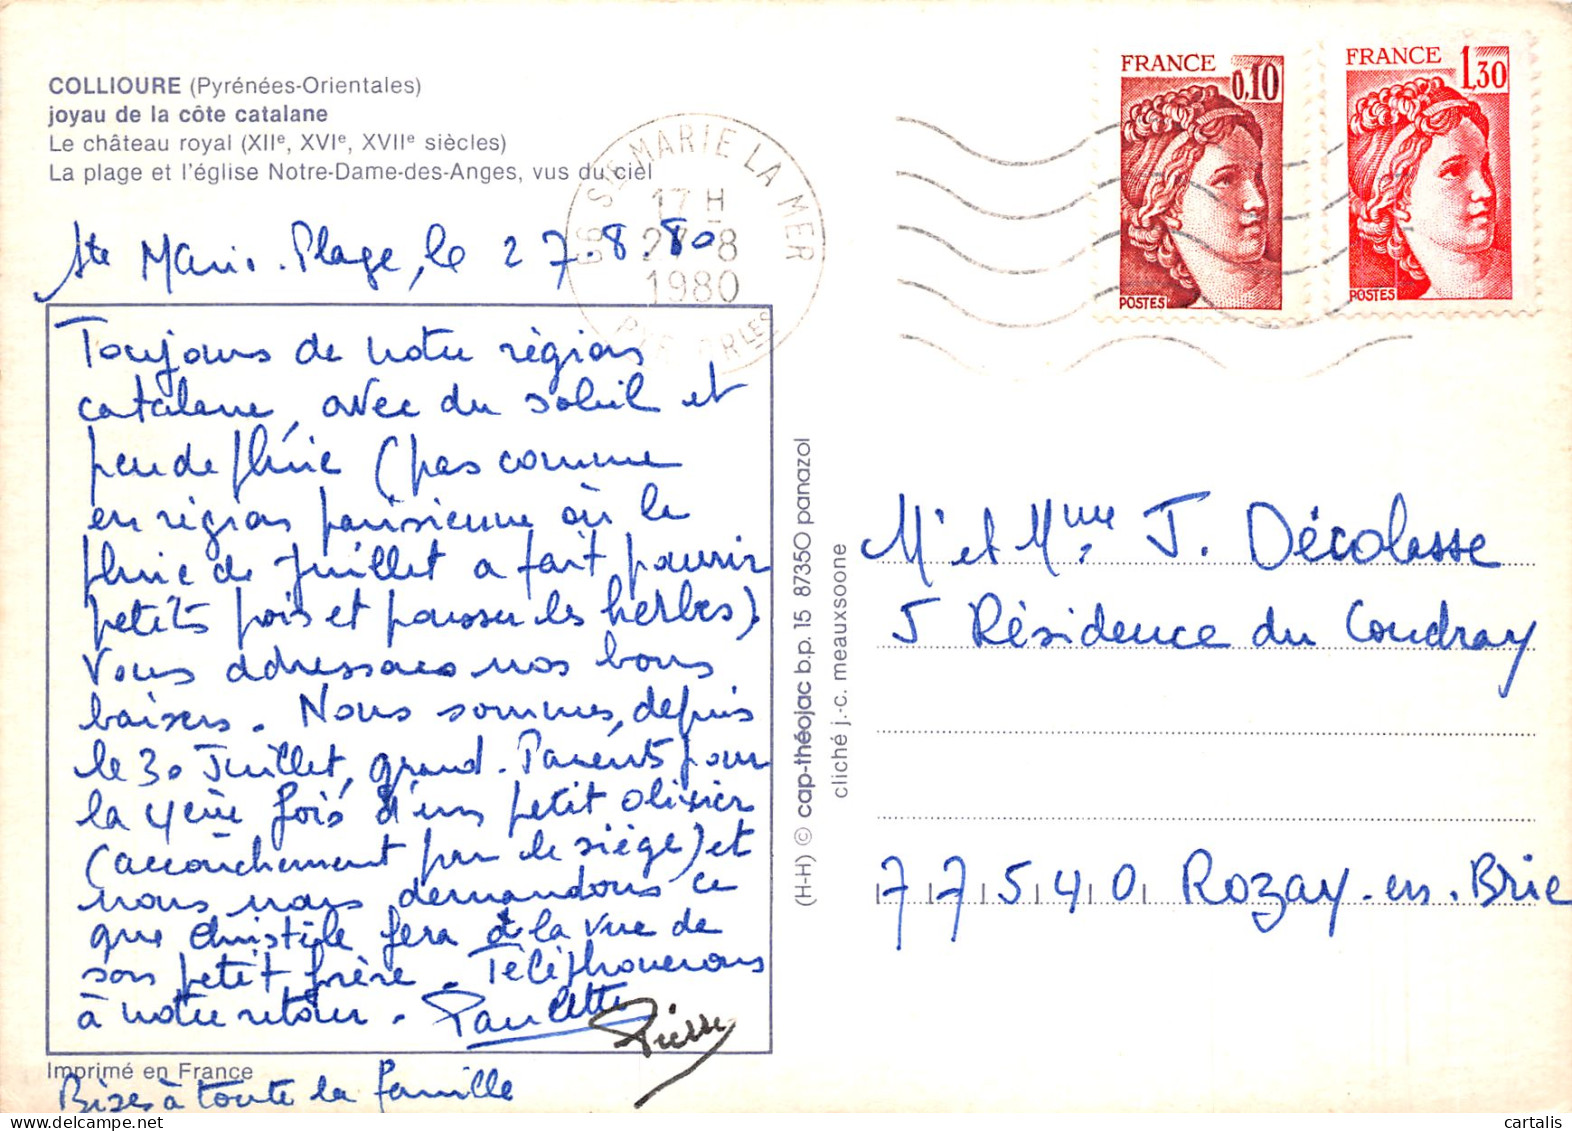 COLLIOURE (Pyrénées-Orientales)
joyau de la côte catalane
Le château royal (XIIe, XVIe, XVIIe siècles)
La plage et l'église Notre-Dame-des-Anges, vus du ciel
66 STE MARIE LA MER
17 H
27-8
1980
PYR. ORLES
FRANCE 0,10
POSTES
FRANCE 1,30
POSTES
Ste Marie-Plage, le 27.8.80
Toujours de notre région
catalane, avec du soleil et
peu de pluie (pas comme
en région parisienne où la
pluie de Juillet a fait pourrir
petits pois et pousser les herbes).
Vous adressons nos bons
baisers. Nous sommes, depuis
le 30 Juillet, grand-Parents pour
la 4ème fois d'un petit Olivier
(accouchement par le siège) et
nous nous demandons ce
que Christèle fera à la vue de
son petit frère. Téléphonerons
à notre retour. Paulette Pierre
Imprimé en France
Bises à toute la famille
(H-H) © cap-théojac b.p. 15 87350 panazol
cliché j.-c. meauxsoone
Mr et Mme J. Décolasse
5 Résidence du Coudray
77540 Rozay-en-Brie
cartalis
www.delcampe.net